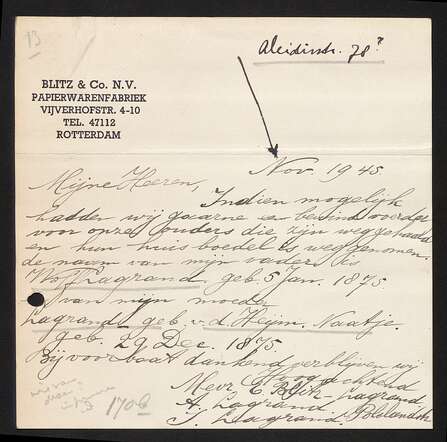 13
Aleidisstr. 78
BLITZ & Co. N.V.
PAPIERWARENFABRIEK
VIJVERHOFSTR. 4-10
TEL. 47112
ROTTERDAM
Nov. 1945
Mijne Heeren,
Indien mogelijk
hadden wij gaarne
voor onze ouders die zijn weggehaald
en hun huis boedel is weggenomen.
de naam van mijn vader is
Lagrand geb. 5 Jan. 1875
van mijn moeder
Lagrand geb. v. d. Heijm. Naatje.
geb. 29 Dec. 1875.
Bij voorbaat dankend verblijven wij
Hoogachtend
Mevr. Lagrand
A. Lagrand
J. Lagrand
1706